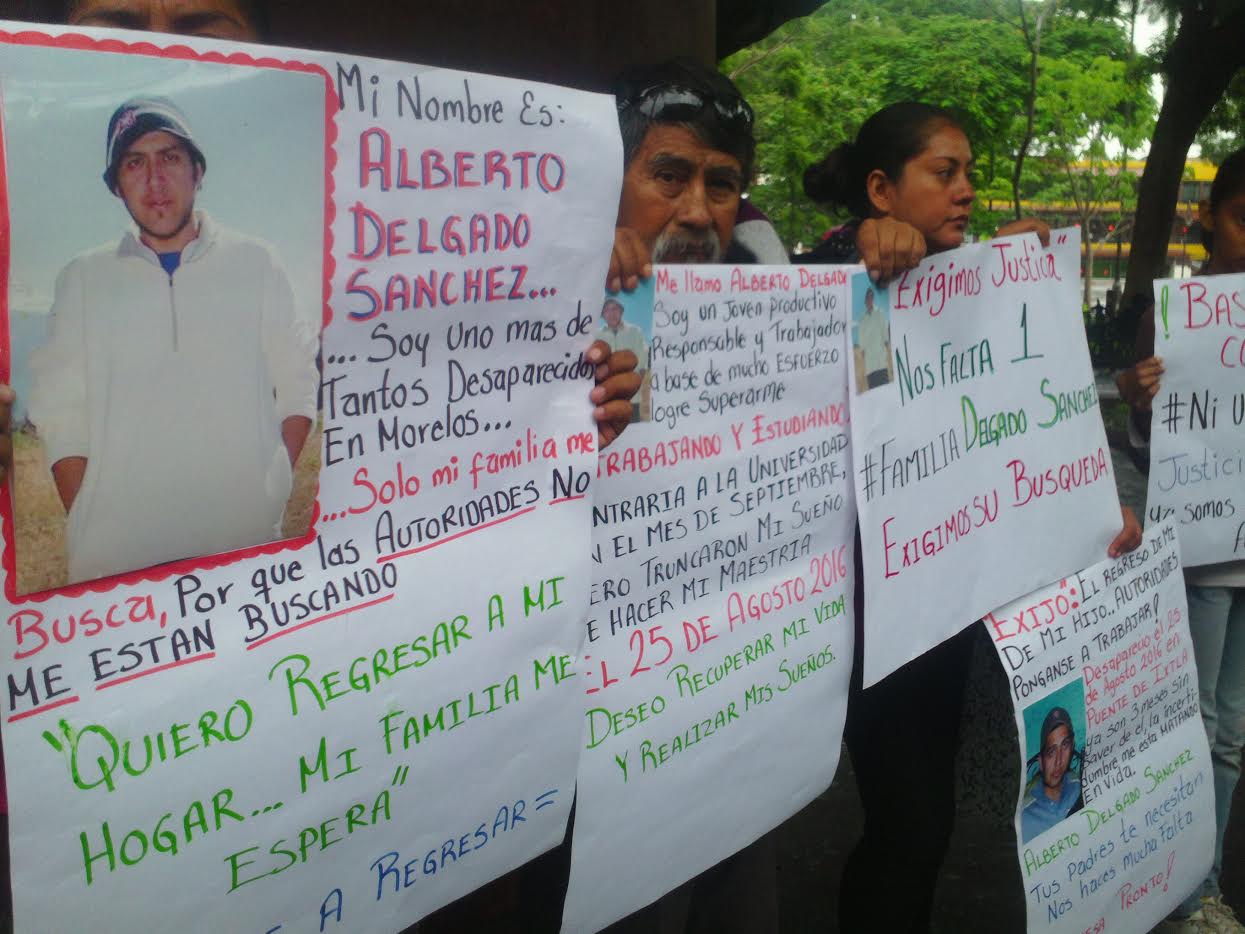 Mi Nombre Es:
ALBERTO
DELGADO
SANCHEZ...
... Soy Uno mas de
Tantos Desaparecidos
En Morelos...
...Solo mi familia me
Busca, Por que las AUTORIDADES NO
ME ESTAN BUSCANDO
"QUIERO REGRESAR A MI
HOGAR... MI FAMILIA ME
ESPERA"
A REGRESAR =
Me llamo ALBERTO DELGADO
Soy un Joven productivo
Responsable y Trabajador
a base de mucho ESFUERZO
logre Superarme
TRABAJANDO Y ESTUDIANDO
NTRARIA A LA UNIVERSIDAD
N EL MES DE SEPTIEMBRE,
ERO TRUNCARON MI SUEÑO
E HACER MI MAESTRIA
EL 25 DE AGOSTO 2016
DESEO RECUPERAR MI VIDA
Y REALIZAR MIS SUEÑOS.
Exigimos Justicia"
NOS FALTA 1
#FAMILIA DELGADO SANCHEZ
EXIGIMOS SU BUSQUEDA
EXIJO": EL REGRESO DE MI
DE MI HIJO.. AUTORIDADES
PONGANSE A TRABAJAR!
Desaparecio el 25
de Agosto 2016 en
PUENTE DE IXTLA
ya son 3 meses sin
saver de el, la incerti-
dumbre me esta MATANDO
En Vida.
ALBERTO DELGADO SANCHEZ
Tus Padres te necesitan
Nos haces mucha Falta
PRONTO!
! BAS
CO
#Ni U
Justici
ya somos